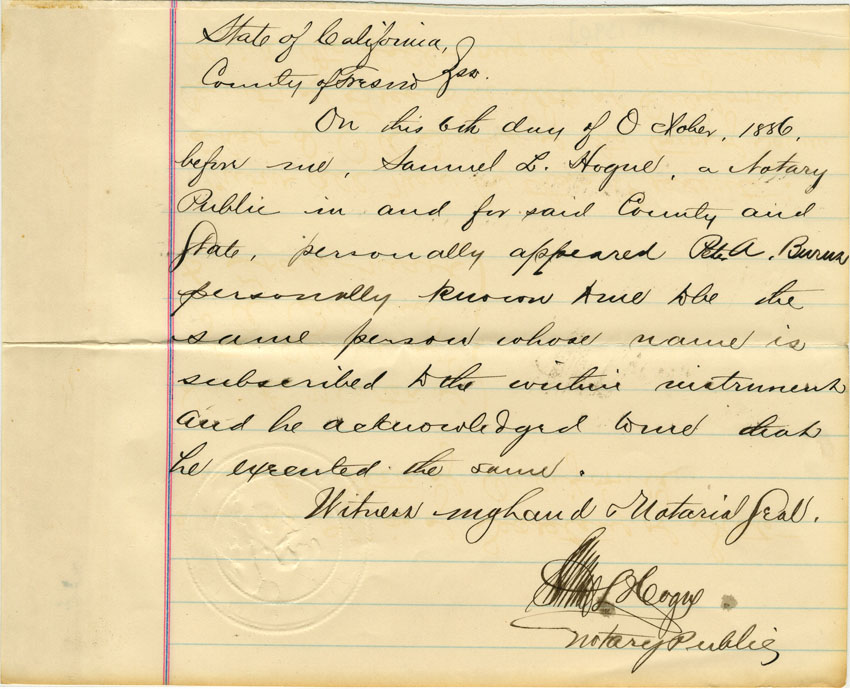 State of California,
County of Fresno } ss.
On this 6th day of October, 1886,
before me, Samuel L. Hogue, a Notary
Public in and for said County and
State, personally appeared Peter A. Burns
personally known to me to be the
same person whose name is
subscribed to the within instrument
and he acknowledged to me that
he executed the same.
Witness my hand & Notarial Seal.
L Hogue
Notary Public